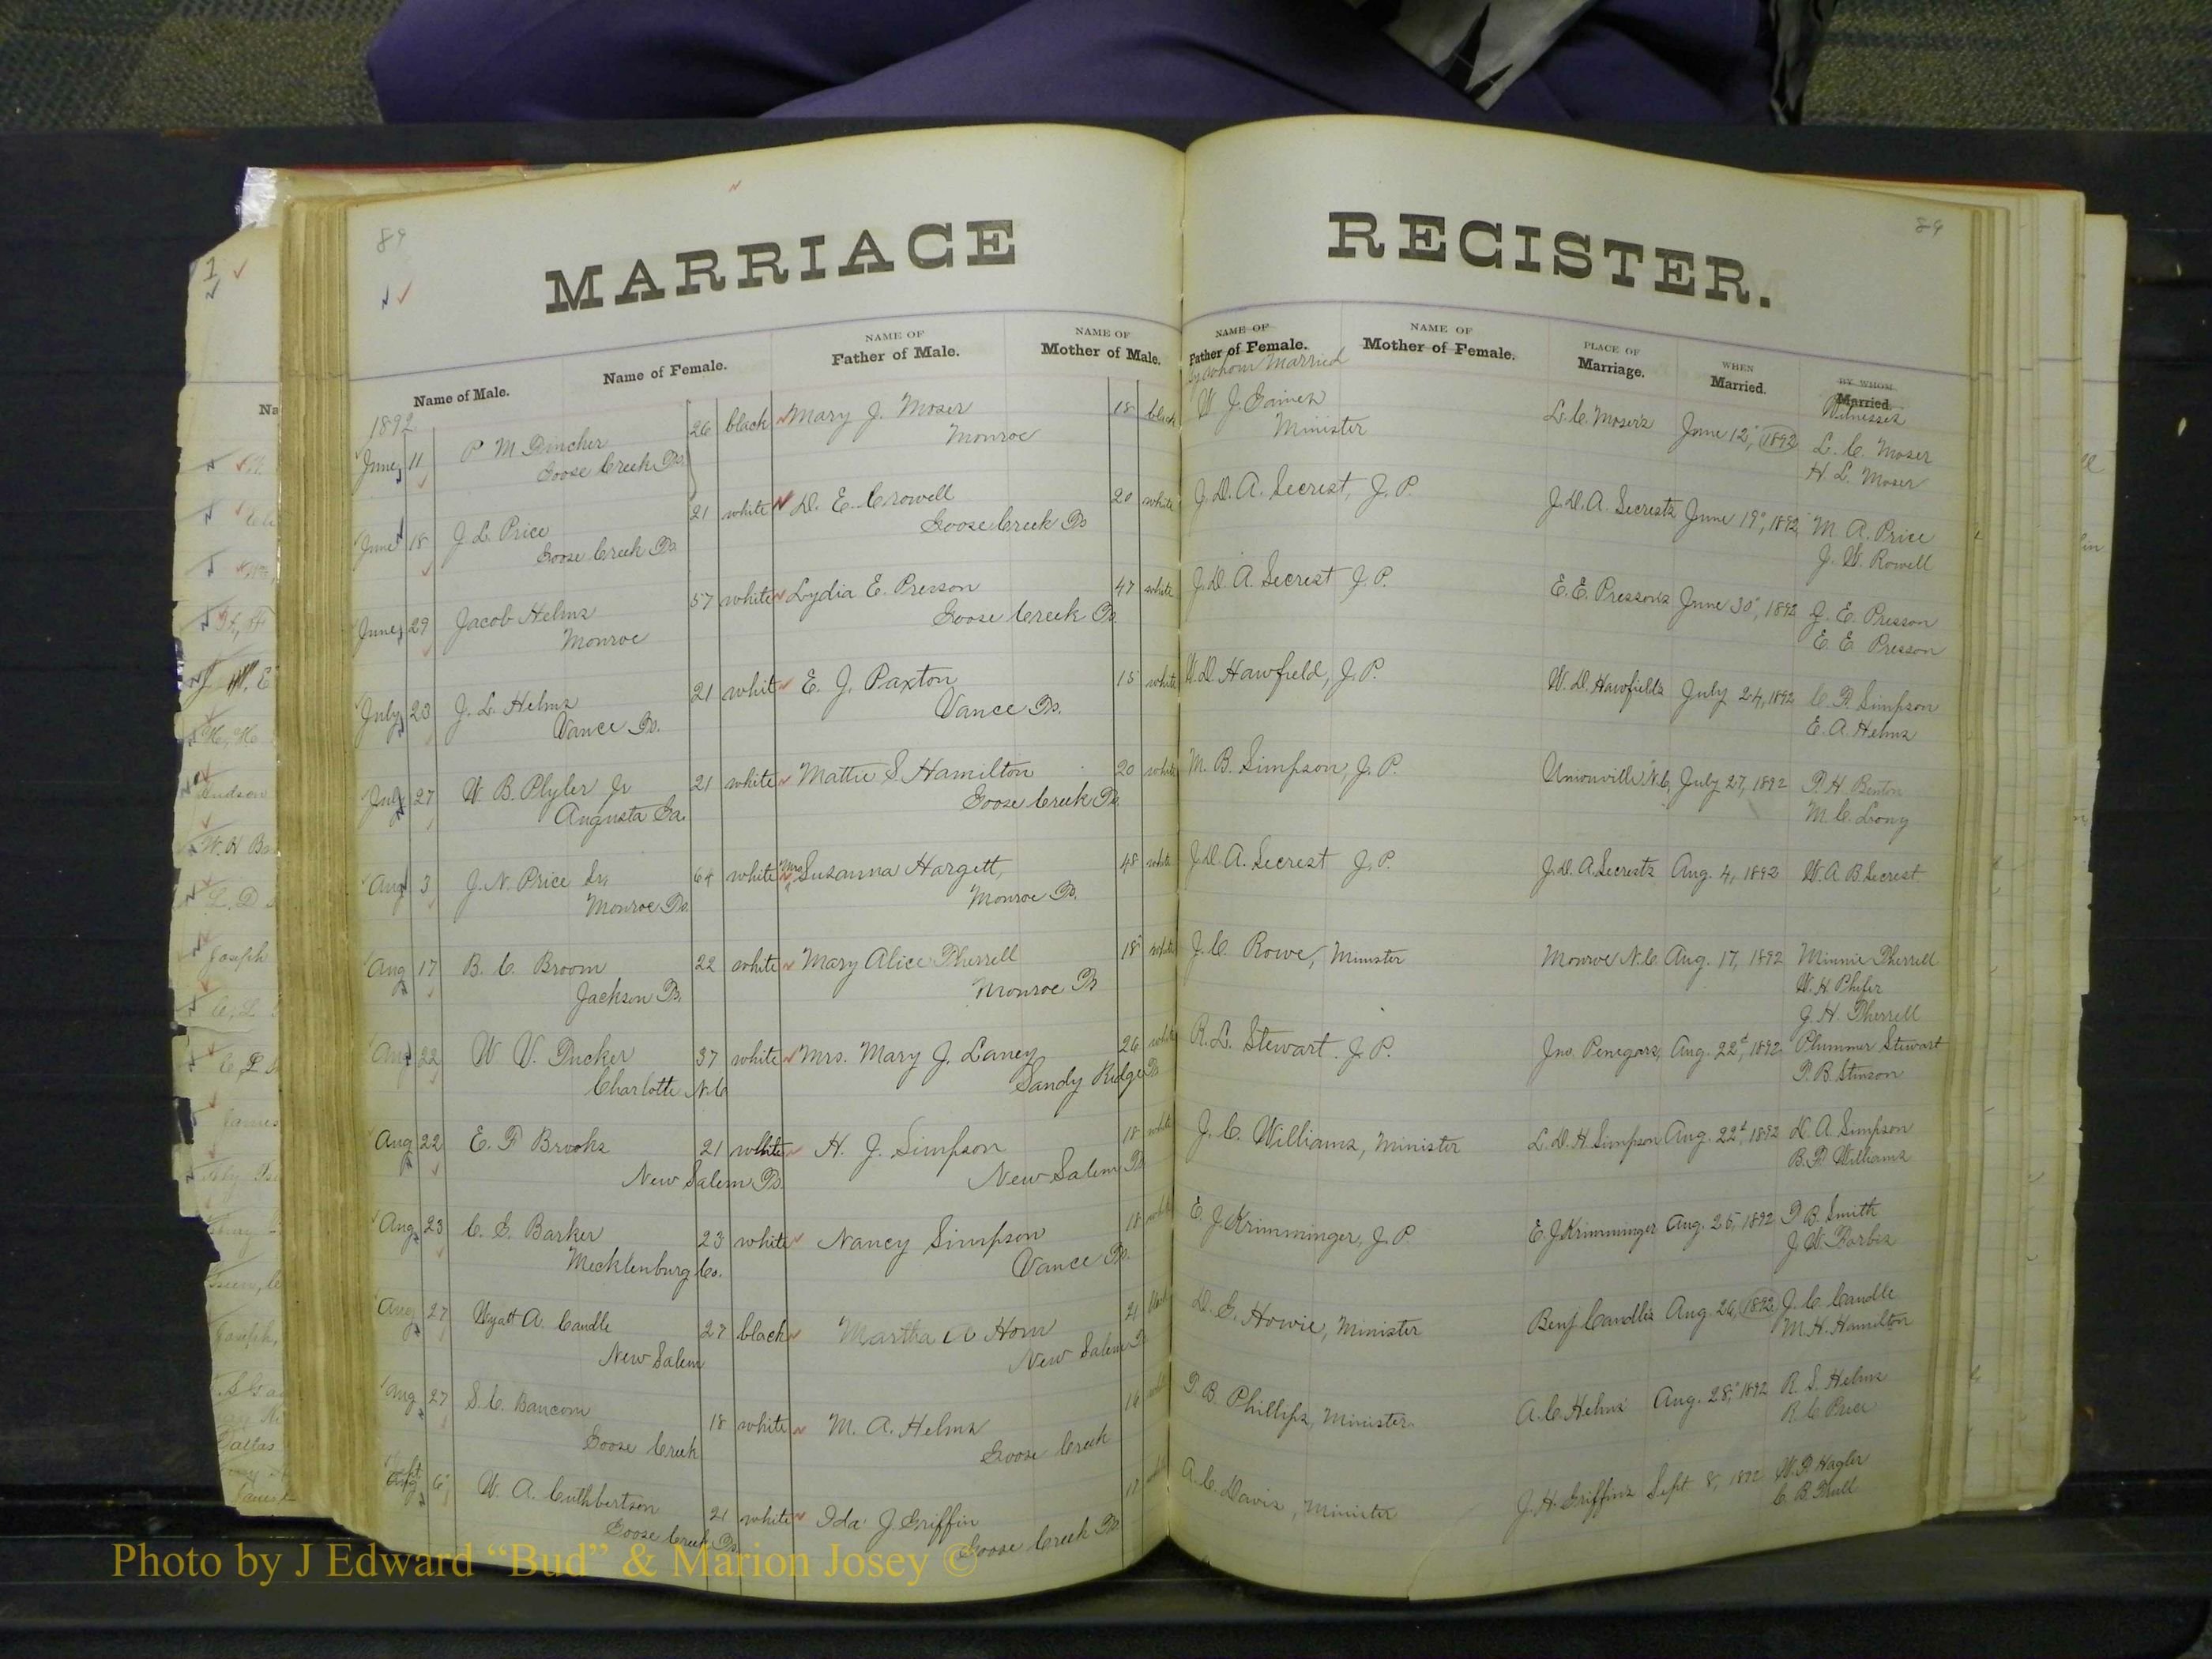 89
89
MARRIAGE REGISTER.
Name of Male.
Name of Female.
NAME OF
Father of Male.
NAME OF
Mother of Male.
NAME OF
Father of Female.
By whom Married
NAME OF
Mother of Female.
PLACE OF
Marriage.
WHEN
Married.
BY WHOM
Married
Witnesses
1892
June 11 P M 26 black Mary J. Moser 18 black W. J. Minister L. C. Moser's June 12, 1892 L. C. Moser
Goose Creek Tp. Monroe H. L. Moser
June 18 J. L. Price 21 white D. E. Crowell 20 white J. D. A. Secrest, J. P. J. D. A. Secrests June 19, 1892 M. A. Price
Goose Creek Tp. Goose Creek Tp J. W. Rowell
June 29 Jacob Helms 57 white Lydia E. Presson 47 white J. D. A. Secrest J. P. E. E. Pressons June 30, 1892 J. E. Presson
Monroe Goose Creek Tp. E. E. Presson
July 23 J. L. Helms 21 white E. J. Paxton 15 white W. D. Hawfield, J. P. W. D. Hawfields July 24, 1892 C. P. Simpson
Vance Tp. Vance Tp. E. A. Helms
July 27 W B. Plyler Jr 21 white Mattie S Hamilton 20 white M. B. Simpson, J. P. Unionville N.C. July 27, 1892 T. H Benton
Augusta Ga. Goose Creek Tp. M. C. Long
Aug 3 J. N. Price Sr. 64 white Mrs Susanna Hargett, 48 white J. D. A. Secrest J. P. J. D. A. Secrests Aug. 4, 1892 W. A. B. Secrest.
Monroe Tp. Monroe Tp.
Aug 17 B. C. Broom 22 white Mary Alice Therrell 18 white J. C. Rowe, Minister Monroe N.C. Aug. 17, 1892 Minnie Therrell
Jackson Tp. Monroe Tp W. H. Phifer
J. H. Therrell
Aug 22 W V. Tucker 37 white Mrs. Mary J. Laney 26 white R. L. Stewart. J. P. Jno. Penegars, Aug. 22d, 1892 Plummer Stewart
Charlotte N.C Sandy Ridge Tp T. B. Stinson
Aug 22 E. F Brooks 21 white H. J. Simpson 18 white J. C. Williams, Minister L. D. H. Simpson Aug. 22d, 1892 D. A. Simpson
New Salem Tp. New Salem Tp B. F. Williams
Aug 23 C. G. Barker 23 white Nancy Simpson 18 white E. J. Krimminger, J. P. E. J Krimminger Aug. 25, 1892 T. B. Smith
Mecklenburg Co. Vance Tp. J. W. Forbis
Aug 27 Wyatt A. Caudle 27 black Martha A Horn 21 black D. G. Howie, Minister Benj Caudles Aug. 26, 1892 J. C. Caudle
New Salem New Salem Tp M. H. Hamilton
Aug 27 S. C. Baucom 18 white M. A. Helms 16 white T. B. Phillips, Minister. A. C. Helms Aug. 28, 1892 R. S. Helms
Goose Creek Goose Creek R. C Price
Sept 6 W. A. Cuthbertson 21 white Ida J Griffin 17 white A. C. Davis, Minister J. H. Griffins Sept. 8, 1892 W. P. Hagler
Goose Creek Tp. Goose Creek Tp. C. B. Trull
Photo by J Edward “Bud” & Marion Josey ©